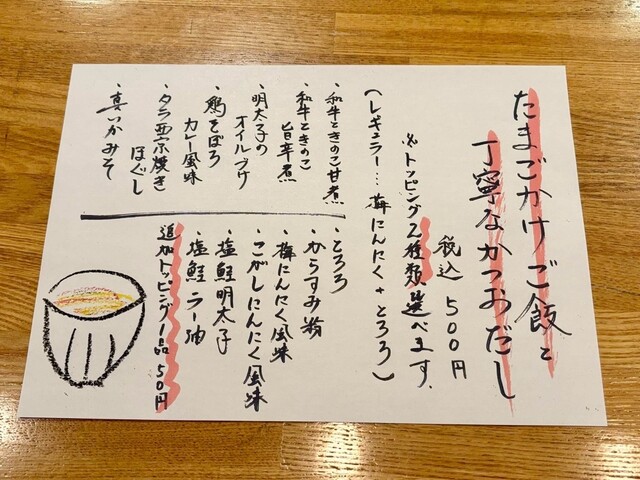 たまごかけご飯と
丁寧なかつおだし
税込 500円
※トッピング2種類、選べます.
(レギュラー… 梅にんにく + とろろ)
・和牛ときのこ甘煮
・和牛ときのこ
旨辛煮
・明太子の
オイルづけ
・鶏そぼろ
カレー風味
・タラ西京焼き
ほぐし
・真いかみそ
・とろろ
・からすみ粉
・梅にんにく風味
・こがしにんにく風味
・塩鮭明太子
・塩鮭ラー油
追加トッピング1品 50円